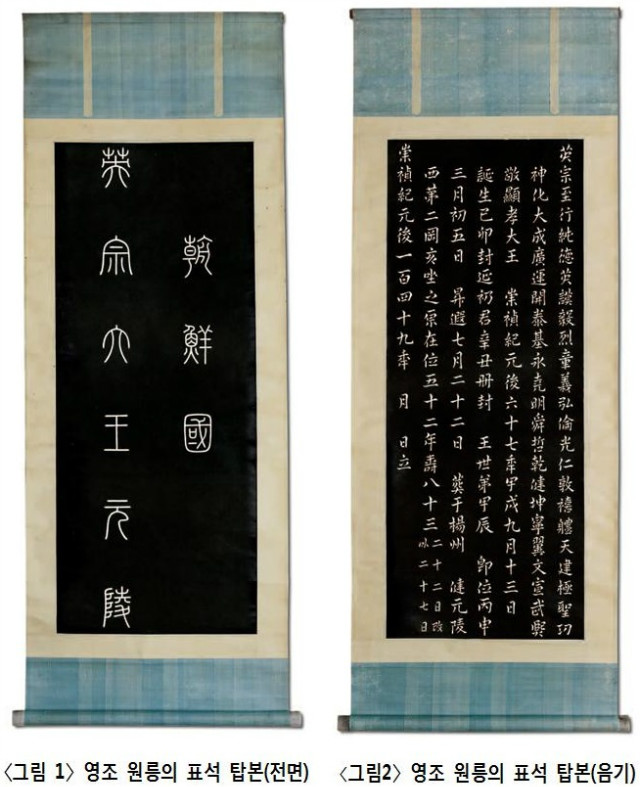 朝鮮國
英宗大王元陵
英宗至行純德英謨毅烈章義弘倫光仁敦禧體天建極聖功
神化大成廣運開泰基永堯明舜哲乾健坤寧翼文宣武熙
敬顯孝大王 崇禎紀元後六十七年甲戌九月十三日
誕生己卯封延礽君辛丑冊封 王世弟甲辰 卽位丙申
三月初五日 昇遐七月二十二日 葬于楊州 健元陵
西第二岡亥坐之原在位五十二年壽八十三 二十二日改以二十七日
崇禎紀元後一百四十九年 月 日立
<그림 1> 영조 원릉의 표석 탑본(전면)
<그림2> 영조 원릉의 표석 탑본(음기)